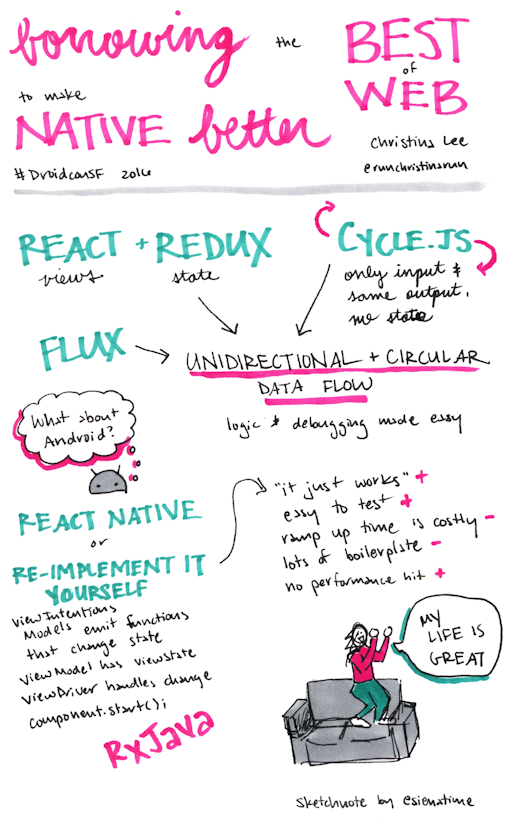 borrowing the BEST
of
to make WEB
NATIVE better
Christina Lee
#DroidconSF 2016 @runchristinarun
REACT + REDUX
views state
CYCLE.JS
only input &
same output,
no state
FLUX
UNIDIRECTIONAL + CIRCULAR
DATA FLOW
logic & debugging made easy
What about
Android?
REACT NATIVE
or
RE-IMPLEMENT IT
YOURSELF
viewIntentions
Models emit functions
that change state
viewModel has viewState
viewDriver handles change
component.start();
RxJava
"it just works" +
easy to test +
ramp up time is costly -
lots of boilerplate -
no performance hit +
MY
LIFE IS
GREAT
sketchnote by @sienatime